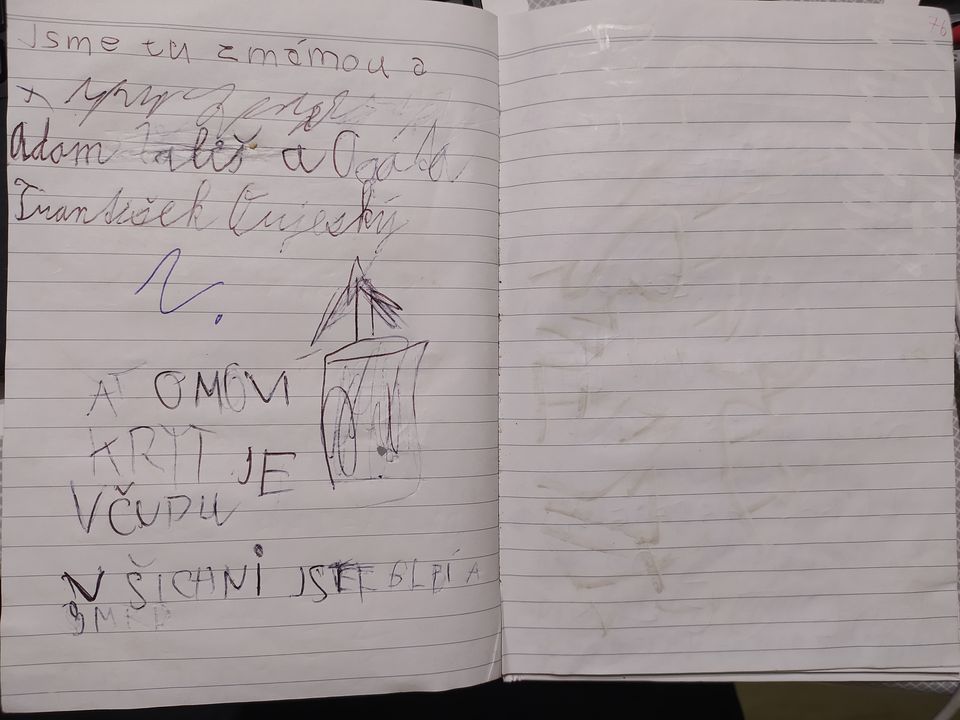 76
Jsme tu z mámou a
Adam a Ogáta
František
AŤOMOVI
KRYT JE
VČUDU
VŠICHNI JSTE BLBÍ A
SMRD